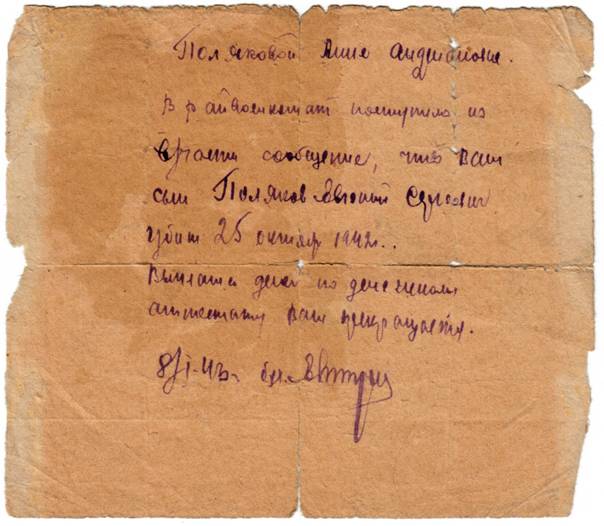 Поляковой Анне Андриановне.
В райвоенкомат поступило из
части сообщение, что Ваш
сын Поляков Евгений Сергеевич
убит 25 октября 1942г..
Выплата денег по денежному
аттестату Вам прекращается.
8/I-43г.